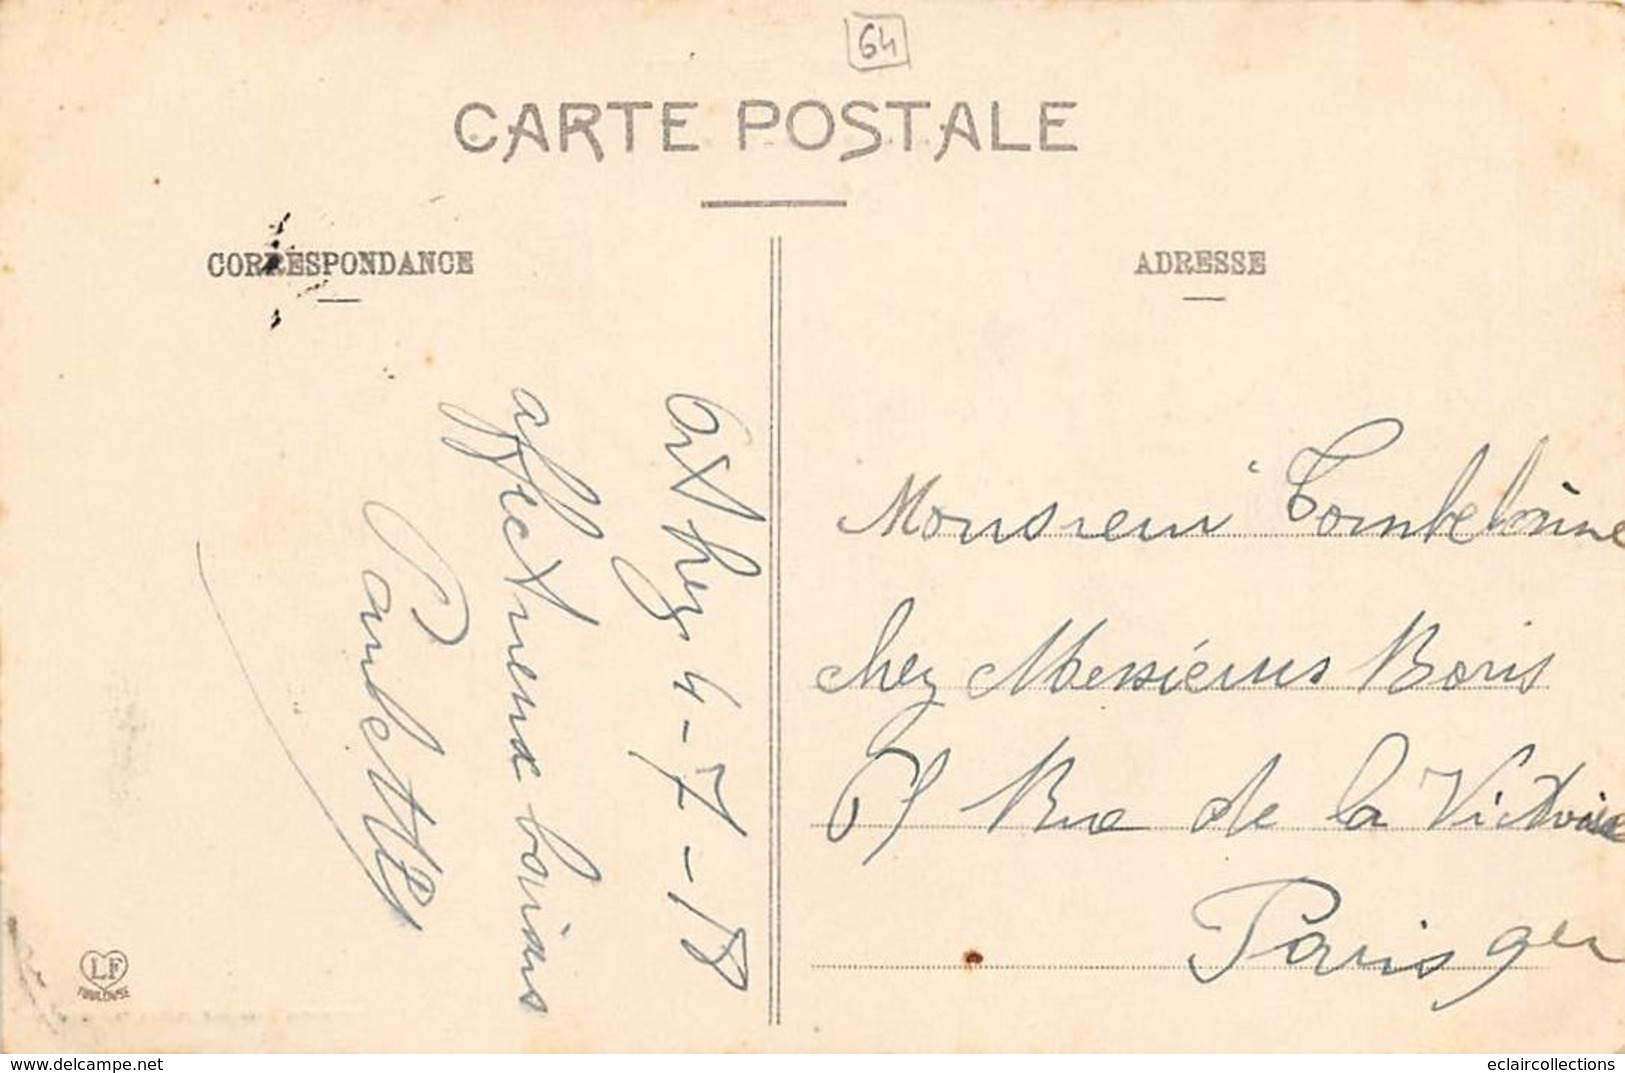 64
CARTE POSTALE
CORRESPONDANCE
ADRESSE
Orthez 4-7-18
affectueux baisers
Paulette
Monsieur
chez Messieurs Boris
Rue de la Victoire
Paris 9e
LF
TOULOUSE
delcampe.net
eclaircollections